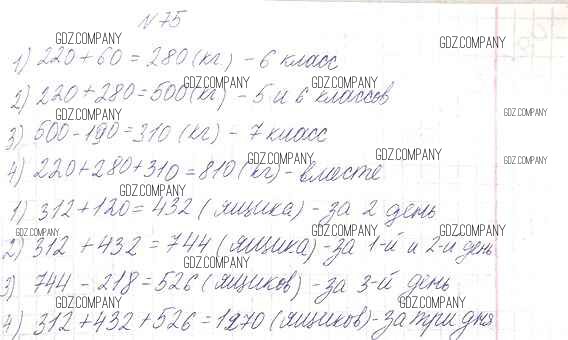 №75
GDZ.COMPANY
GDZ.COMPANY
1) 220+60=280(кг) - 6 класс
GDZ.COMPANY GDZ.COMPANY
2) 220+280=500(кг) - 5 и 6 классов
GDZ.COMPANY
3) 500-190=310(кг) - 7 класс
GDZ.COMPANY GDZ.COMPANY GDZ.COMPANY
4) 220+280+310=810(кг) - вместе
GDZ.COMPANY
1) 312+120=432(ящика) - за 2 день
GDZ.COMPANY GDZ.COMPANY GDZ.COMPANY
2) 312+432=744(ящика) - за 1-й и 2-й день
GDZ.COMPANY
3) 744-218=526(ящиков) - за 3-й день
GDZ.COMPANY GDZ.COMPANY
4) 312+432+526=1270(ящиков) - за три дня